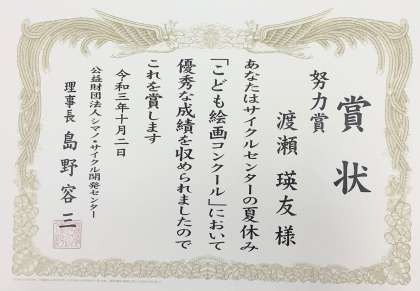 賞状
努力賞
渡瀬 瑛友 様
あなたはサイクルセンターの夏休み
「こども絵画コンクール」において
優秀な成績を収められましたので
これを賞します
令和三年十月二日
公益財団法人シマノ・サイクル開発センター
理事長 島野容三